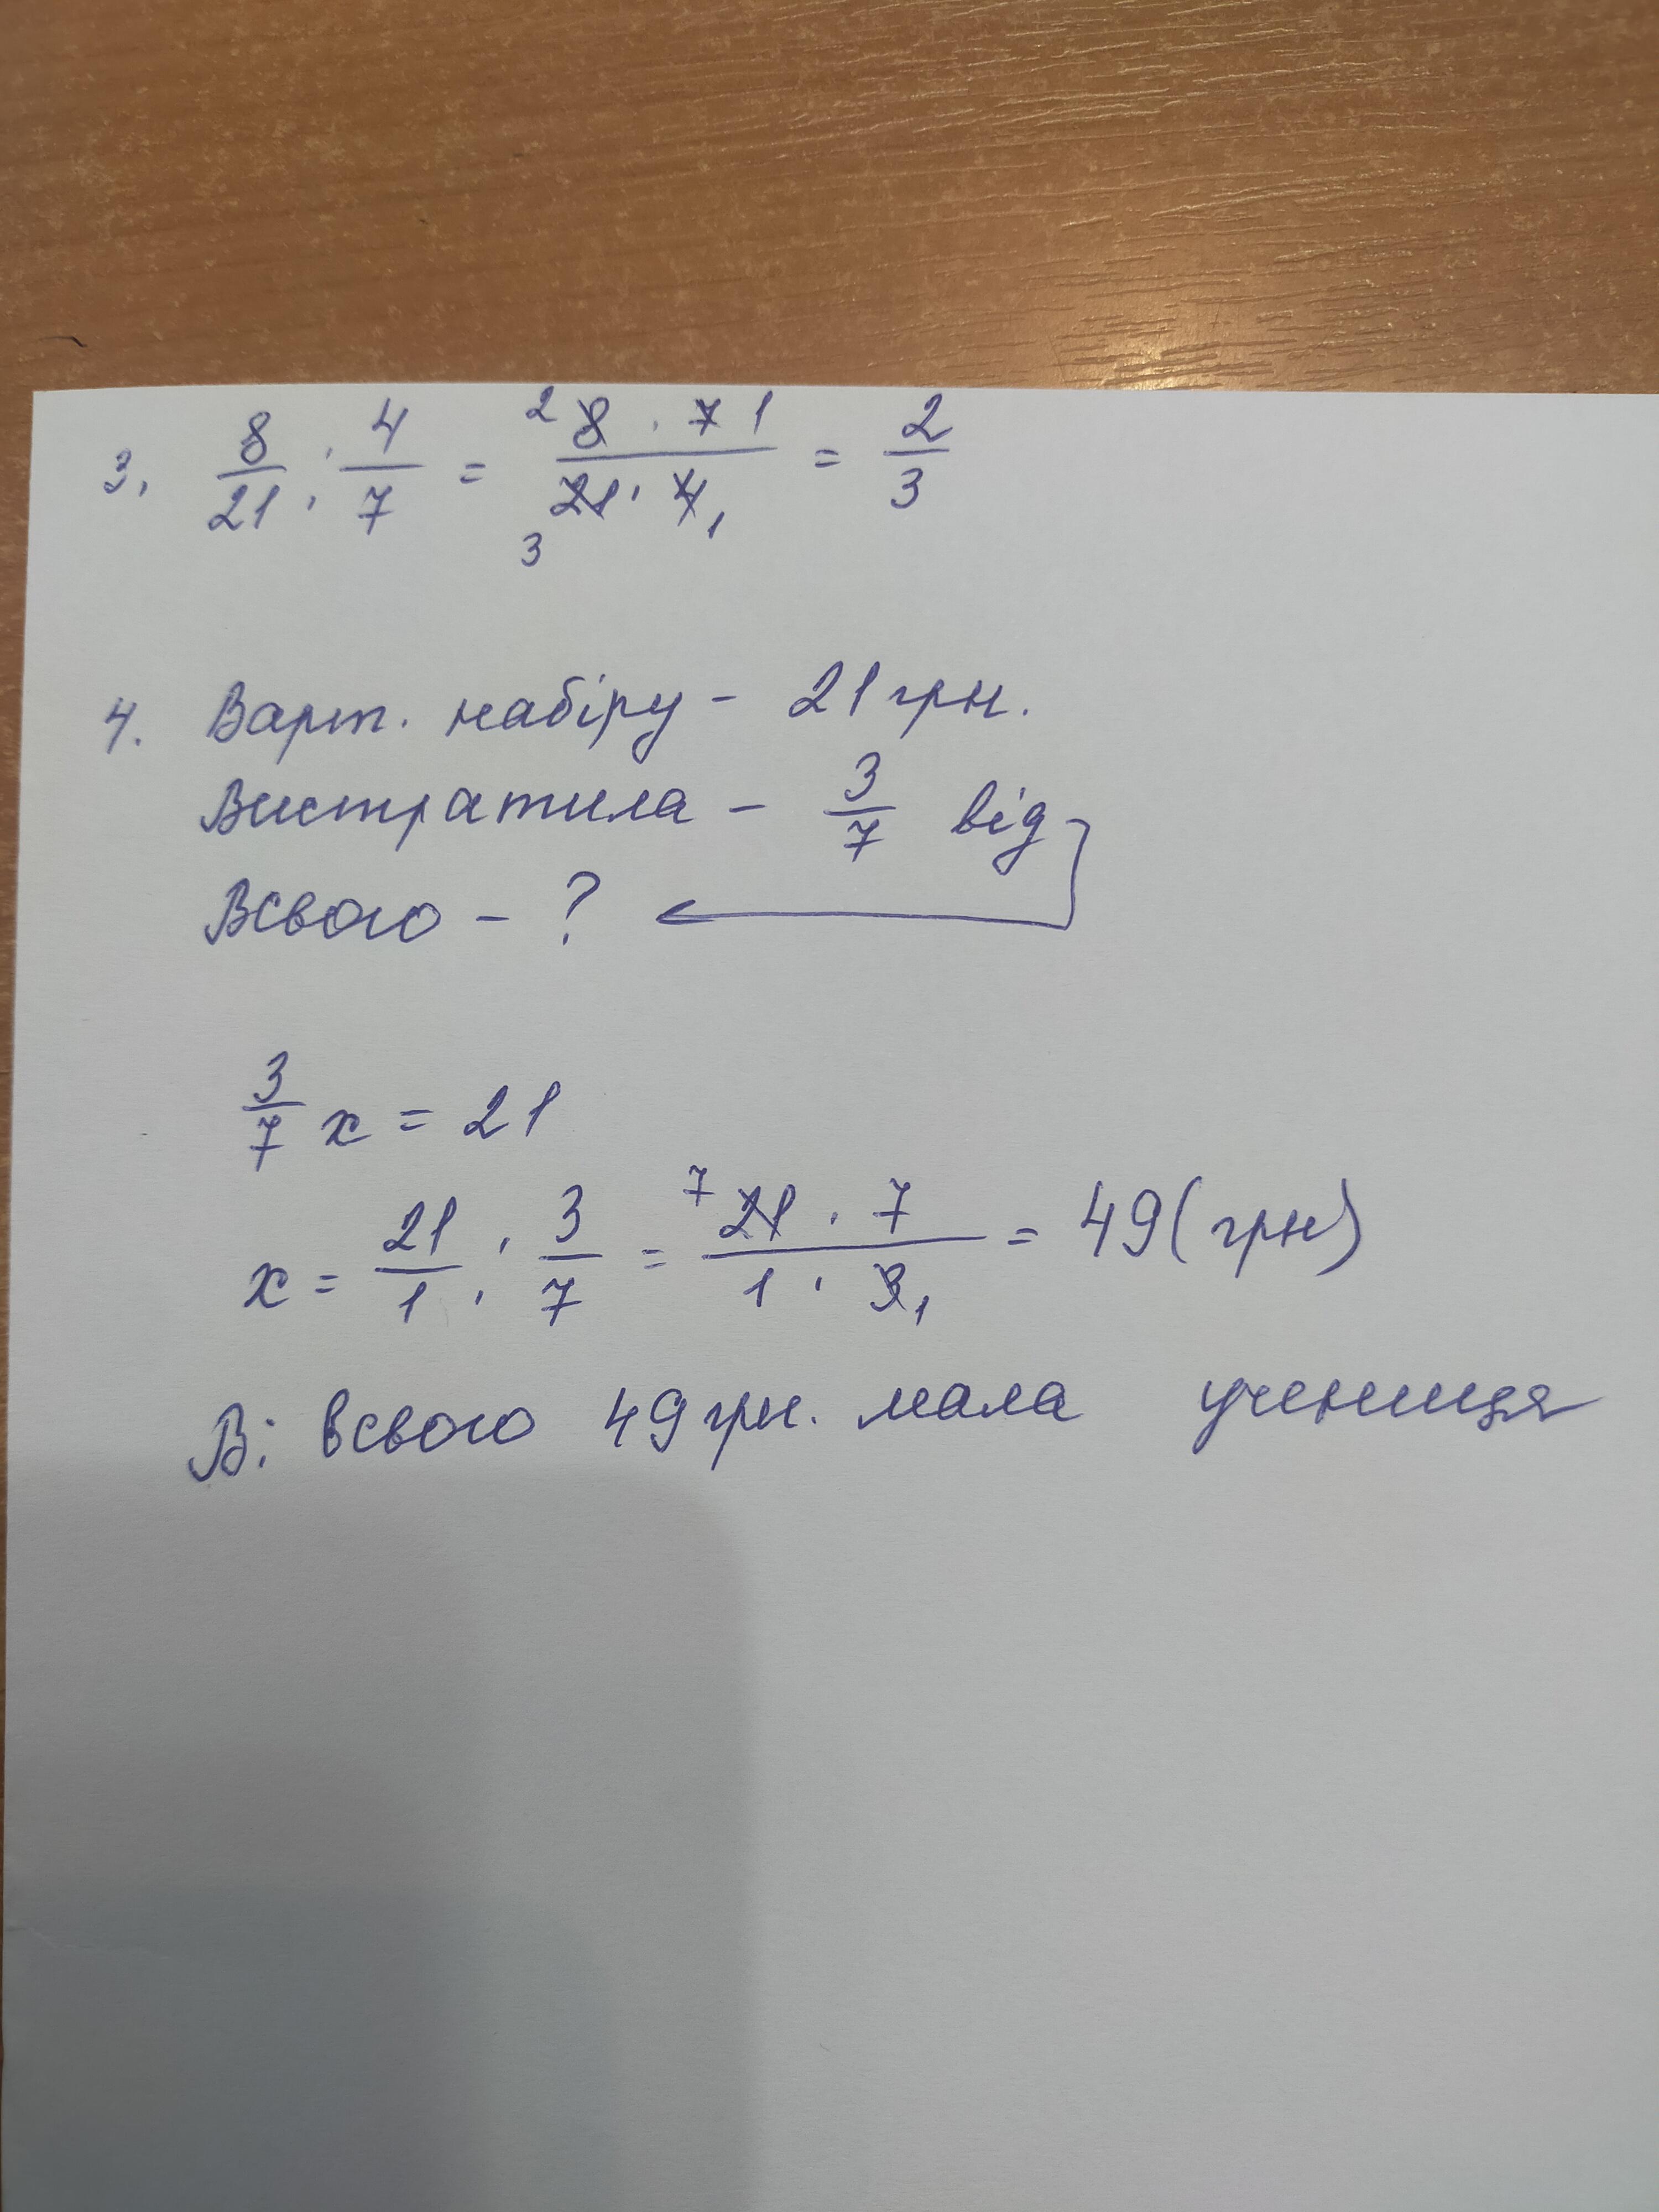 3. 8/21 : 4/7 = 2 8 · 7 1 / 3 21 · 4 1 = 2/3
4. Варт. набіру - 21 грн.
Витратила - 3/7 від
Всього - ?
3/7 x = 21
x = 21/1 : 3/7 = 7 21 · 7 / 1 · 3 1 = 49 (грн)
В: всього 49 грн. мала учениця